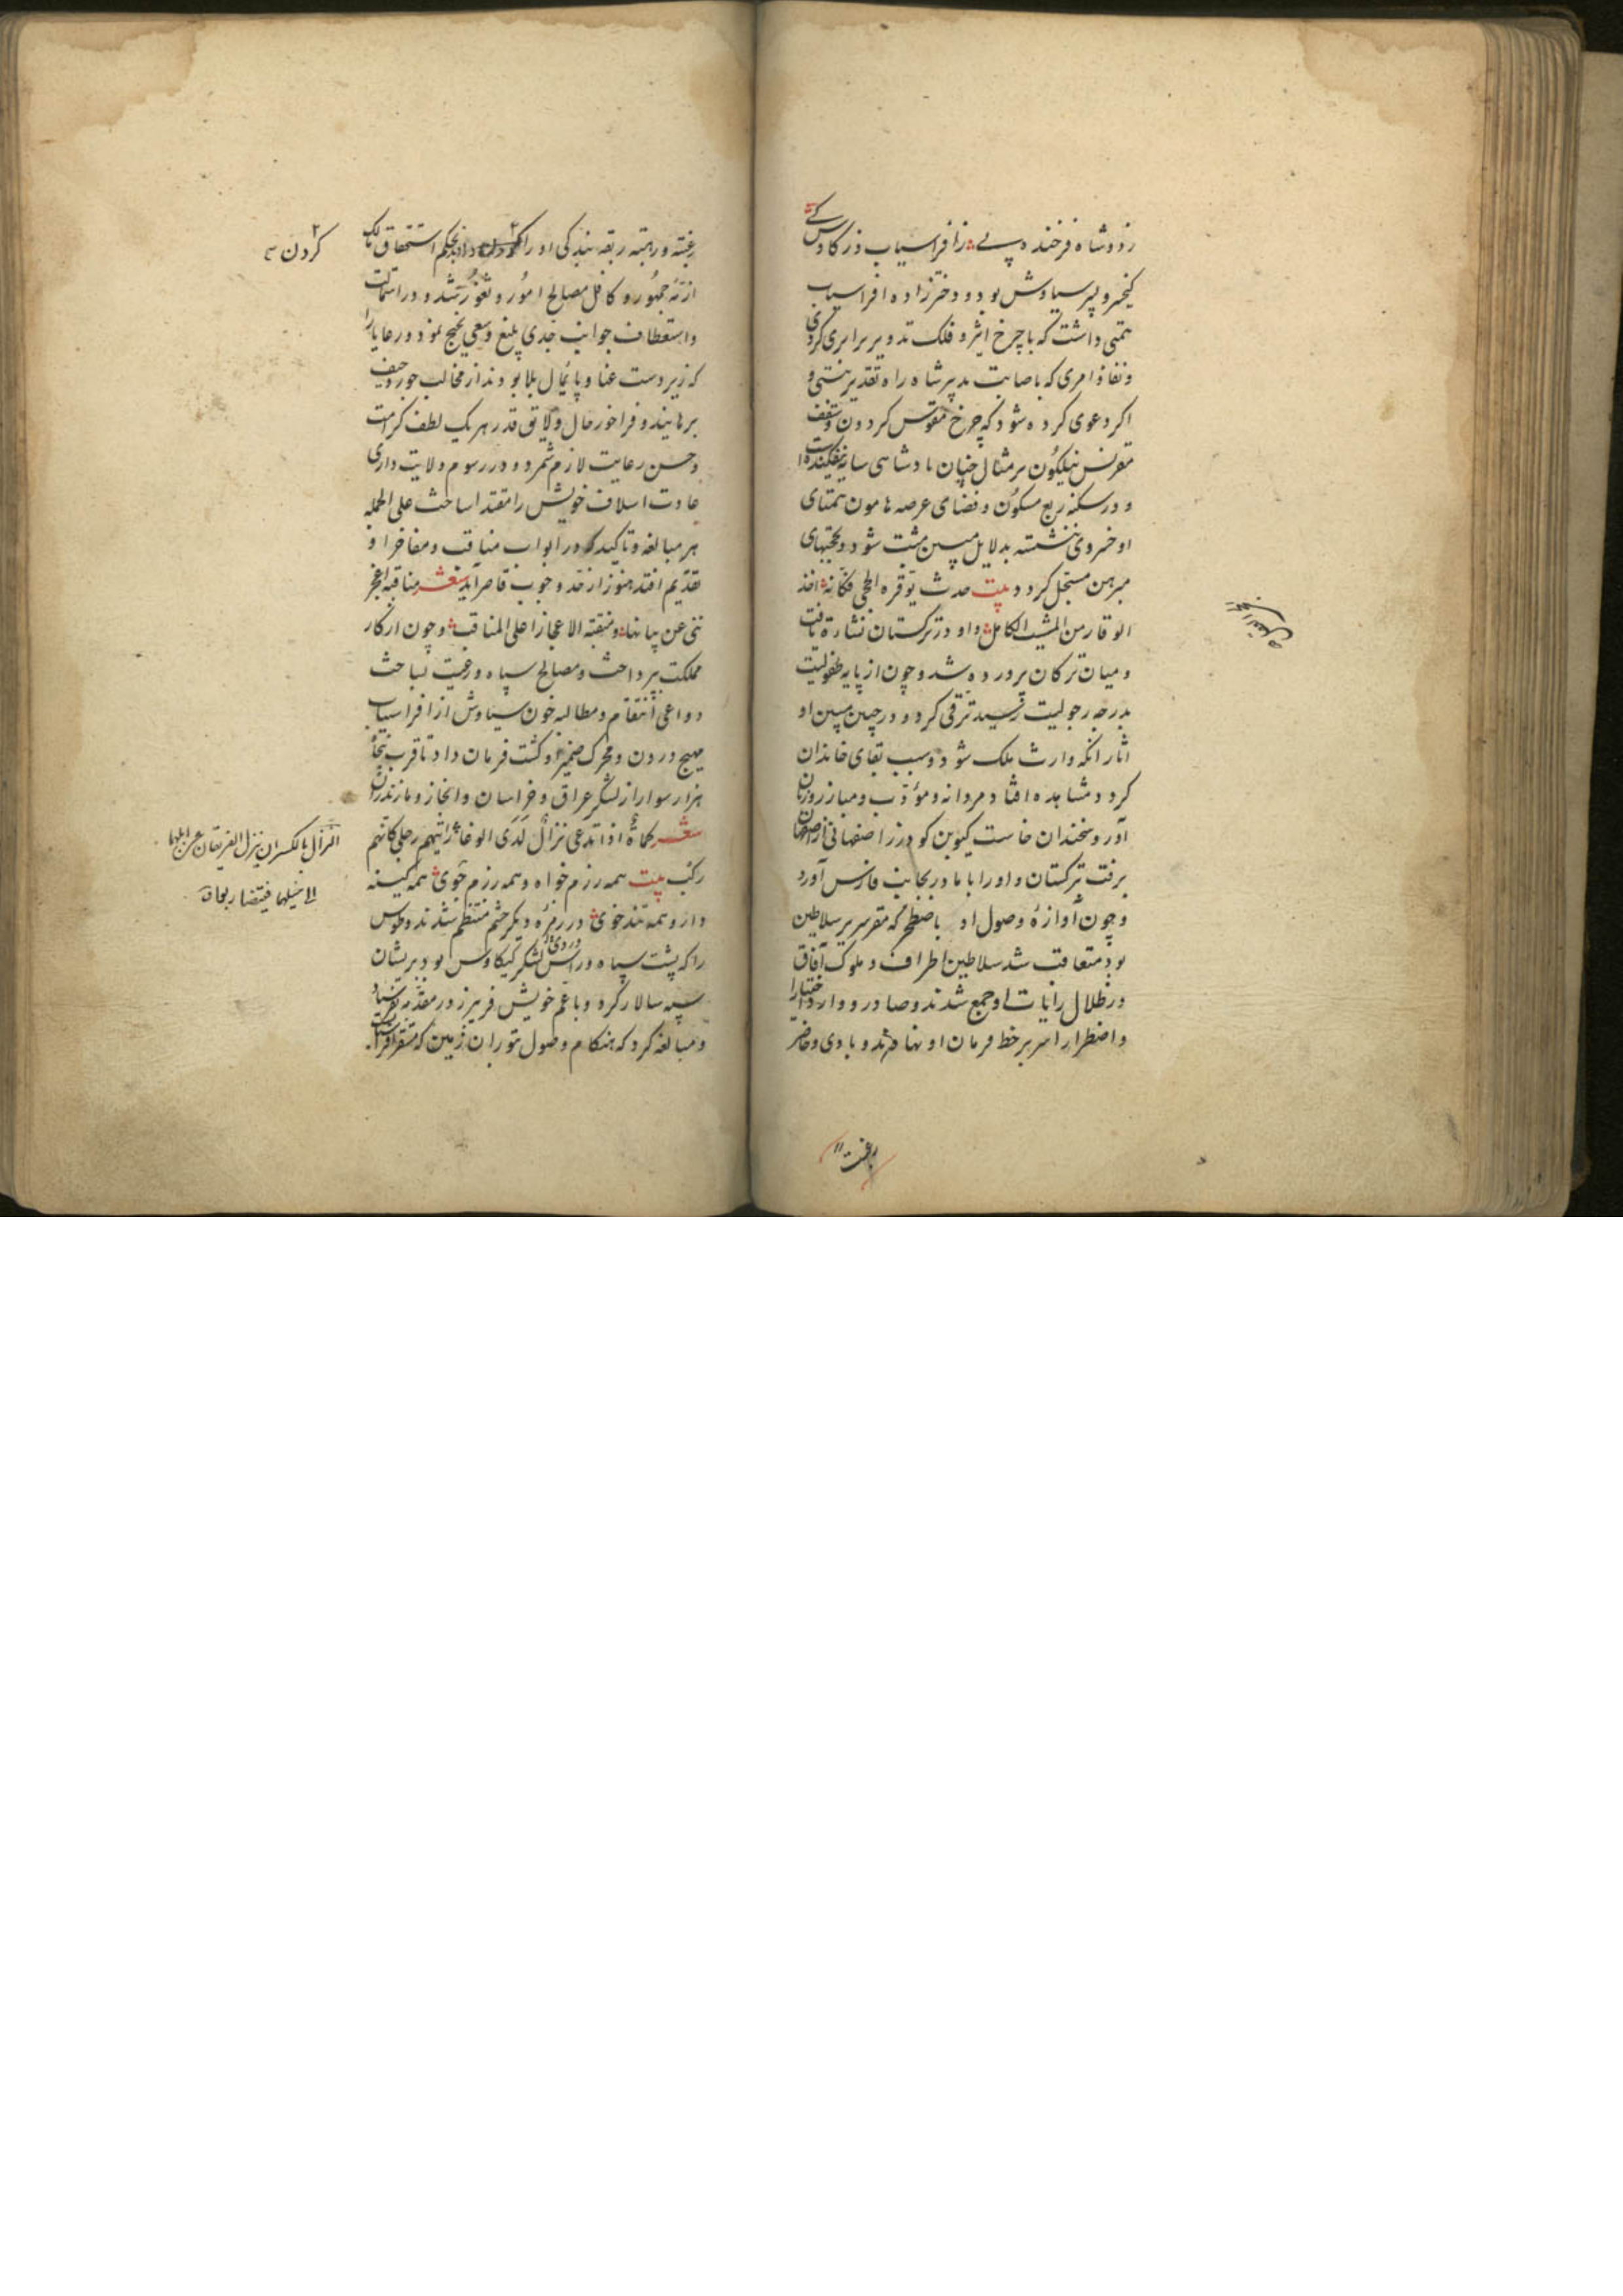 ز دو شاه فرخنده پی ز افراسیاب و ز کاوس کی
کیخسرو پسر سیاوش بود و دختر زاده افراسیاب
همتی داشت که با چرخ اثیر و فلک تدویر برابری کردی
و نفاذ امری که باصابت تدبیر شاه راه تقدیر ببستی و
اگر دعوی کرده شود که چرخ مقوس گردون و سقف
مقرنس نیلگون بر مثال چنان پادشاهی سایه نیفکنده است
و در سکنه ربع مسکون و فضای عرصه هامون همتای
او خسروی ننشسته بدلایل مبین مثبت شود و بحجتهای
مبرهن مسجل گردد بیت حدث یوقره الحجی فکانه اخذ
الوقار من المشیب الکامل و او در ترکستان نشات یافت
و میان ترکان پرورده شد و چون از پایه طفولیت
بدرجه رجولیت رسید ترقی کرد و در جبین مبین او
اثار انکه وارث ملک شود و سبب بقای خاندان
کردد مشاهده افتاد مردانه و مؤدب و مبارز و زبان
آور و سخندان خاست گیو بن گودرز اصفهانی از اصفهان
برفت بترکستان و او را با مادر بجانب فارس آورد
و چون آوازهٔ وصول او باصطخر که مقر سریر سلاطین
بود متعاقب شد سلاطین اطراف و ملوک آفاق
در ظلال رایات او جمع شدند و صادر و وارد اختیارا
و اضطرارا سر بر خط فرمان او نهادند و بادی و حاضر
رغبت
رغبة و رهبة ربقه بندگی او را بحکم استحقاق مالک
ازمّه جمهور و کافل مصالح امور و ثغور شد و در استمالت
و استعطاف جوانب جدی بلیغ و سعی نجیح نمود و رعایا را
که زیر دست عنا و پایمال بلا بودند از مخالب جور و حیف
برهانید و فراخور حال و لایق قدر هر یک لطف کرامت
و حسن رعایت لازم شمرد و در رسوم ولایت داری
عادت اسلاف خویش را مقتدا ساخت علی الجمله
هر مبالغه و تاکید که در ابواب مناقب و مفاخر او
تقدیم افتد هنوز از قدر وجوب قاصر آید شعر مناقبه اعجز
ننی عن بیانها و منقبة الاعجاز اعلی المناقب و چون از کار
مملکت بپرداخت و مصالح سپاه و رعیت بساخت
دواعی انتقام و مطالبه خون سیاوش از افراسیاب
مهیج درون و محرک ضمیر او گشت فرمان داد تا قرب پنجاه
هزار سوار از لشکر عراق و خراسان و انجاز و مازندران
شعر کماة اذا تدعی نزال لدی الوغا رایتهم رجلی کانهم
رکب بیت همه رزم خواه و همه رزم جوی همه کینه
دار و همه تند خوی در زمره دیگر حشم منتظم شدند و طوس
را که پشت سپاه و روی راس لشکر کیکاوس بود بریشان
سپه سالار کرد و با عم خویش فریبرز در مقدمه بفرستاد
و مبالغه کرد که هنکام وصول بتوران زمین که مستقر افراسیاب
کردن
النزال بالکسر ان ینزل الفریقان عن ابلهما
الی خیلهما فیتضاربوا